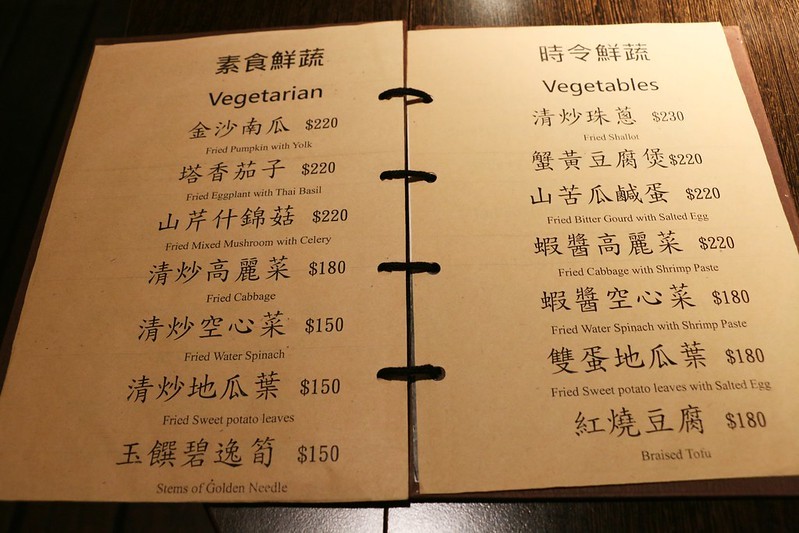 素食鮮蔬
Vegetarian
金沙南瓜 $220
Fried Pumpkin with Yolk
塔香茄子 $220
Fried Eggplant with Thai Basil
山芹什錦菇 $220
Fried Mixed Mushroom with Celery
清炒高麗菜 $180
Fried Cabbage
清炒空心菜 $150
Fried Water Spinach
清炒地瓜葉 $150
Fried Sweet potato leaves
玉饌碧逸筍 $150
Stems of Golden Needle
時令鮮蔬
Vegetables
清炒珠蔥 $230
Fried Shallot
蟹黃豆腐煲$220
山苦瓜鹹蛋 $220
Fried Bitter Gourd with Salted Egg
蝦醬高麗菜 $220
Fried Cabbage with Shrimp Paste
蝦醬空心菜 $180
Fried Water Spinach with Shrimp Paste
雙蛋地瓜葉 $180
Fried Sweet potato leaves with Salted Egg
紅燒豆腐 $180
Braised Tofu